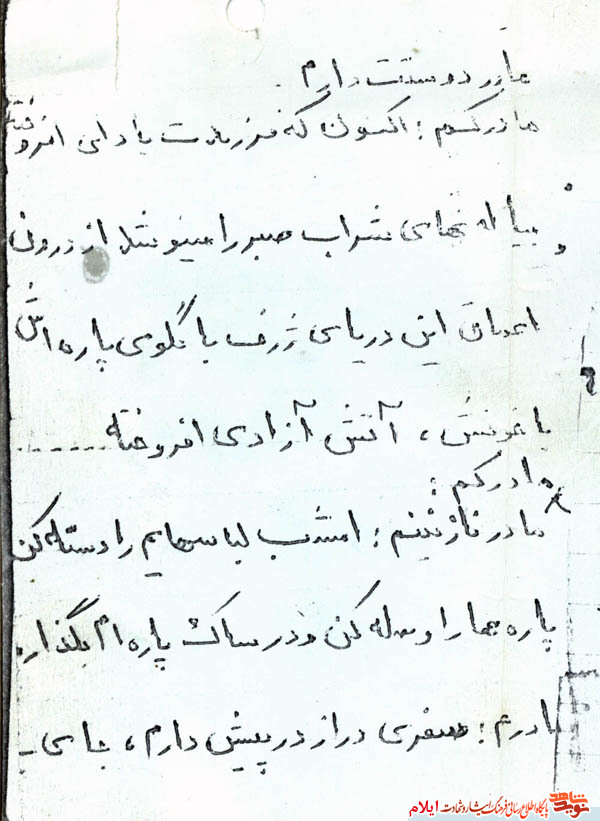 مادر دوستت دارم.
مادرکم؛ اکنون که فرزندت با دلی افروخته
پیاله های شراب صبر را مینوشد از درون
اعماق این دریای ژرف با گلوی پاره اش
با خونش، آتش آزادی افروخته......
مادرکم؛
مادر نازنینم؛ امشب لباسهایم را دسته کن
پاره هارا وصله کن و در ساک پاره ام بگذار
مادرم؛ صفری دراز در پیش دارم، جای-
نوید شاهد
پایگاه اطلاع رسانی فرهنگ ایثار و شهادت ایلام